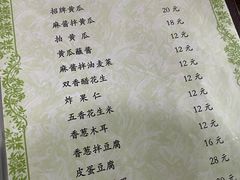 招牌黄瓜 20 元
麻酱拌黄瓜 18 元
拍黄瓜 12 元
黄瓜蘸酱 12 元
麻酱拌油麦菜 12 元
双香酷花生 12 元
炸果仁 12 元
五香花生米 12 元
香葱木耳 12 元
香葱拌豆腐 16 元
皮蛋豆腐 28 元
元